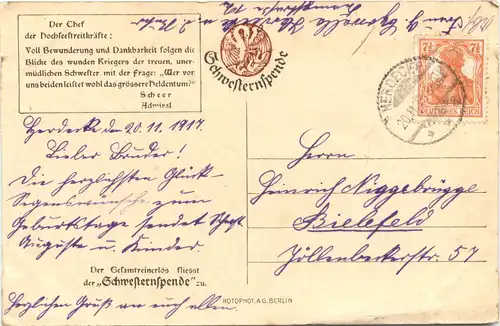 Der Chef
der Hochseestreitkräfte:
Voll Bewunderung und Dankbarkeit folgen die
Blicke des wunden Kriegers der treuen, uner-
müdlichen Schwester mit der Frage: „Wer vor
uns beiden leistet wohl das grössere Heldentum?"
Scheer
Admiral
Schwesternspende
7½ 7½
DEUTSCHES REICH
HERDECKE
Herdecke, den 20.11.1917.
Lieber Bruder!
Die herzlichsten Glück-
Segenswünsche zum
Geburtstage sendet
Auguste u. Kinder
Der Gesamtreinerlös fliesst
der „Schwesternspende" zu.
Herzlichen Gruß an euch allen.
Herrn
Heinrich Niggebrügge
Bielefeld
Zöllenbeckerstr. 57
ROTOPHOT, A.G. BERLIN